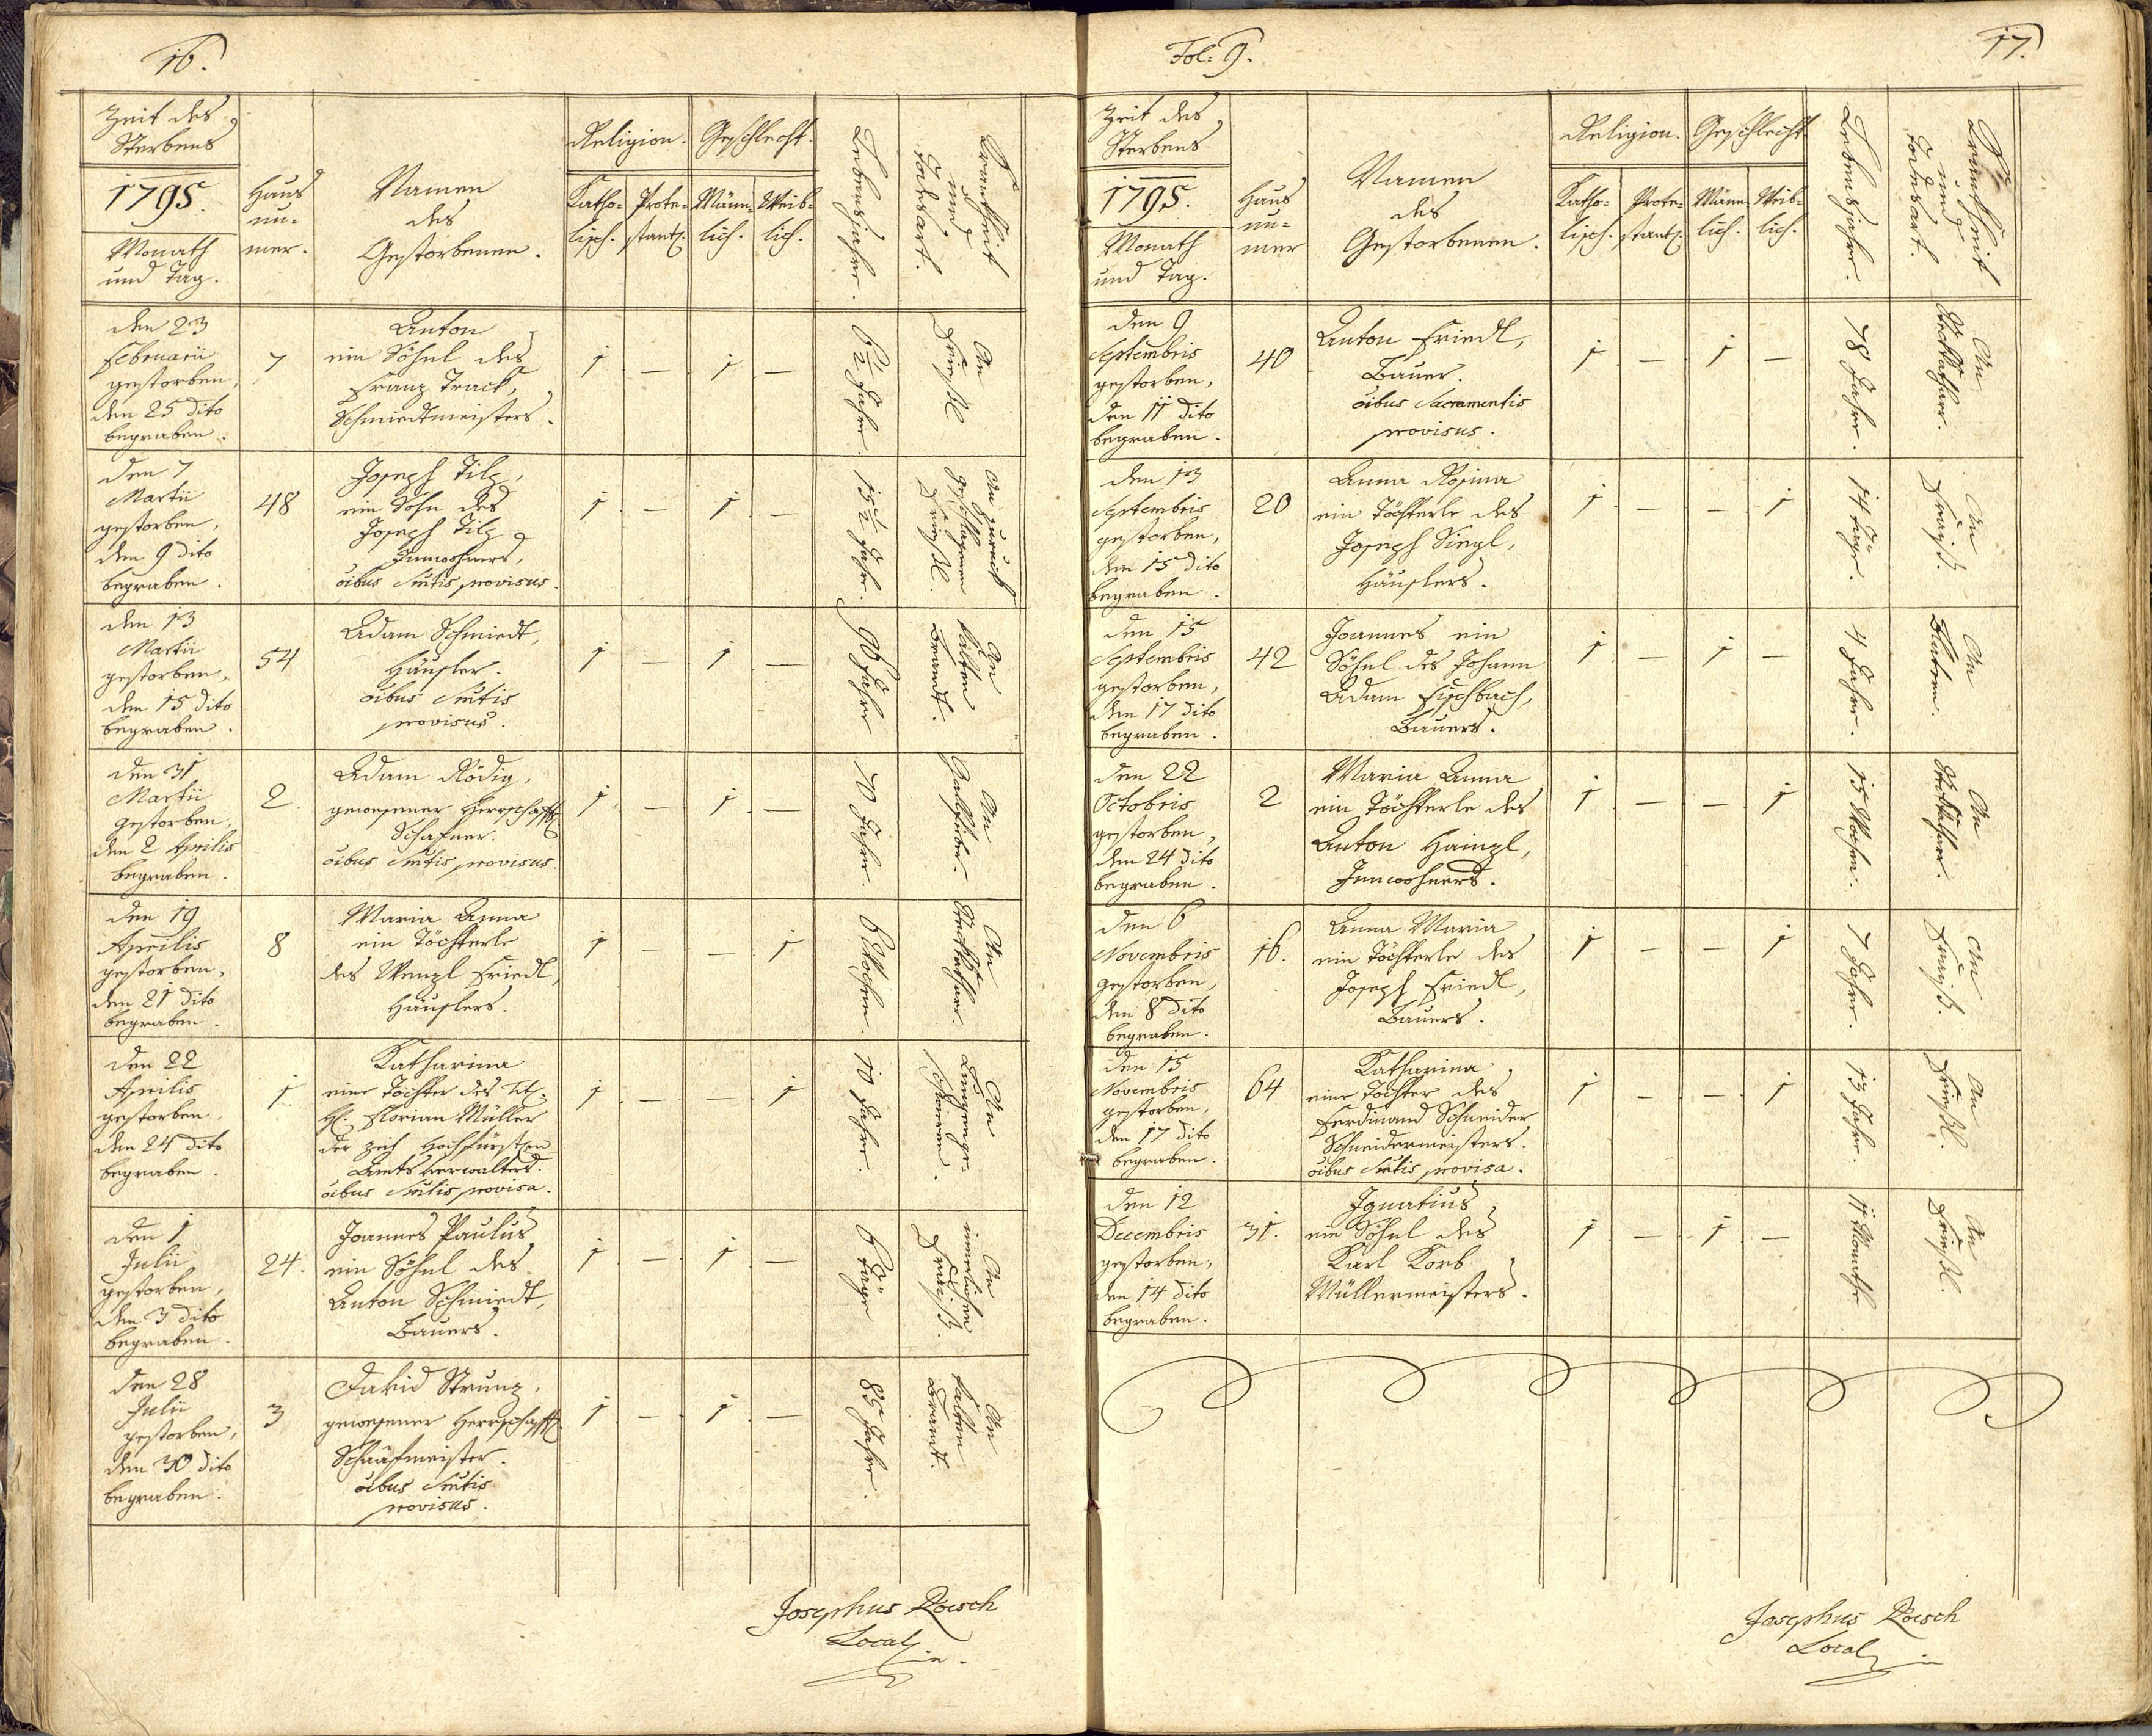 16.
Zeit des
Sterbens
1795.
Monath
und Tag.
Haus
nu=
mer.
Namen
des
Gestorbenen.
Religion.
Katho=
lisch.
Prote=
stant.
Geschlecht.
Män̄=
lich.
Weib=
lich.
Lebensjahre.
Krankheit
und
Todesart.
den 23
Februarii
gestorben,
den 25 dito
begraben.
7
Anton
ein Söhnl des
Franz Track,
Schmiedtmeisters.
1 — 1 —
6½ Jahr.
An
den 7
Martii
gestorben,
den 9 dito
begraben.
48
Joseph Tilz,
ein Sohn des
Joseph Tilz
Innwohners,
oibus Smtis provisus.
1 — 1 —
15½ Jahr.
An zuruck
geschlagenen
den 13
Martii
gestorben,
den 15 dito
begraben.
54
Adam Schmiedt,
Häusler.
oibus Smtis
provisus.
1 — 1 —
Jahr
An
kalten
Brandt.
den 31
Martii
gestorben,
den 2 Aprilis
begraben.
2
Adam Rödig,
gewesener Herrschaftl
Schafner.
oibus Smtis provisus.
1 — 1 —
70 Jahre.
An
Gallfieber.
den 19
Aprilis
gestorben,
den 21 dito
begraben.
8
Maria Anna
ein Töchterle
des Wenzl Friedl,
Häuslers.
1 — — 1
6 Wochen.
An
Steckkathar.
den 22
Aprilis
gestorben
den 24 dito
begraben.
1
Katharina
eine Tochter des Tit.
H. Florian Müller
der zeit Hochfürstn
Amts Verwalters.
oibus Smtis provisa.
1 — — 1
10 Jahre.
An
Lungenge=
schwüren.
den 1
Julii
gestorben,
den 3 dito
begraben.
24.
Joannes Paulus
ein Söhnl des
Anton Schmiedt,
Bauers.
1 — 1 —
6 Täge
An
innerlichen
Fraiß.
den 28
Julii
gestorben,
den 30 dito
begraben.
3
David Strunz,
gewesener Herrschaftl.
Schaafmeister.
oibus Smtis
provisus.
1 — 1 —
85 Jahre.
An
kalten
Brandt.
Josephus Roesch
Local
Fol: 9.
17.
Zeit des
Sterbens
1795.
Monath
und Tag.
Haus
nu=
mer
Namen
des
Gestorbenen.
Religion.
Katho=
lisch.
Prote=
stant.
Geschlecht
Män̄=
lich.
Weib=
lich.
Lebensjahre.
Krankheit
und
Todesart.
den 9
Septembris
gestorben,
den 11 dito
begraben.
40
Anton Friedl,
Bauer.
oibus Sacramentis
provisus.
1 — 1 —
78 Jahre.
An
Steckkathare.
den 13
Septembris
gestorben,
den 15 dito
begraben.
20
Anna Rosina
ein Töchterle des
Joseph Siegl,
Häuslers.
1 — — 1
14 Täge.
An
Fraiß.
den 15
Septembris
gestorben,
den 17 dito
begraben.
42
Joannes ein
Söhnl des Johann
Adam Fischbach,
Bauers.
1 — 1 —
4 Jahre.
An
Blatern.
den 22
Octobris
gestorben,
den 24 dito
begraben.
2
Maria Anna
ein Töchterle des
Anton Hainzl,
Innwohners.
1 — — 1
15 Wochen.
An
Steckkathare.
den 6
Novembris
gestorben,
den 8 dito
begraben.
16.
Anna Maria
ein Töchterle des
Joseph Friedl,
Bauers.
1 — — 1
7 Jahre.
An
Fraiß.
den 15
Novembris
gestorben,
den 17 dito
begraben.
64
Katharina,
eine Tochter des
Ferdinand Schneider
Schneidermeisters.
oibus Smtis provisa.
1 — — 1
13 Jahre.
An
den 12
Decembris
gestorben,
den 14 dito
begraben.
31.
Ignatius
ein Söhnl des
Karl Korb
Müllermeisters.
1 — 1 —
11 Monathe
An
Josephus Roesch
Local